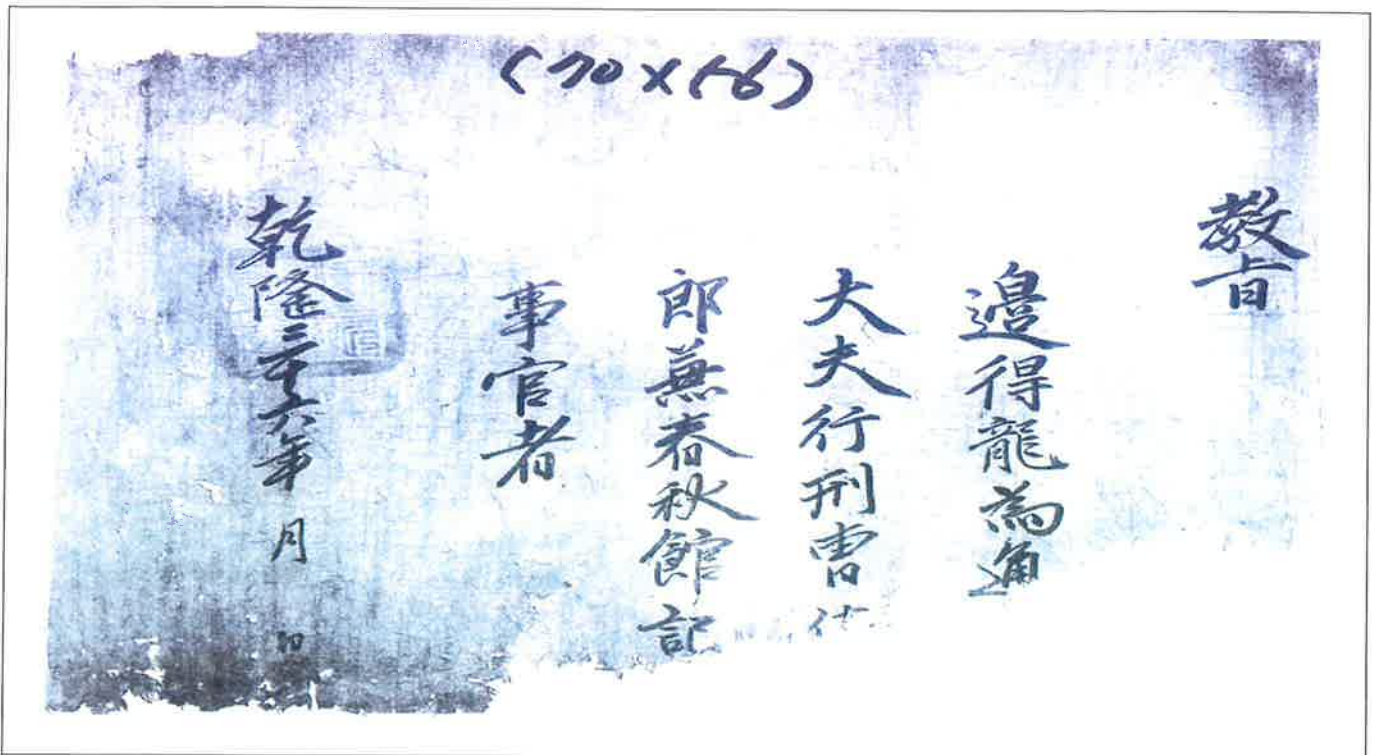 (70×56)
教旨
邉得龍為通
大夫行刑曹
郎兼春秋館記
事官者
乾隆三十六年 月 日